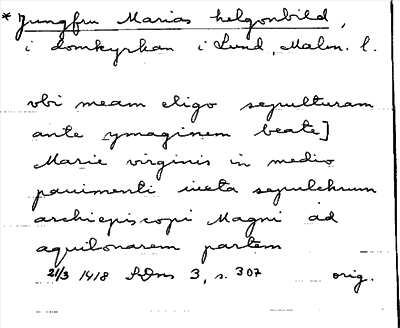 * Jungfru Marias helgonbild,
i domkyrkan i Lund, Malm. l.
vbi meam eligo sepulturam
ante ymaginem beate]
Marie virginis in medio
pauimenti iuxta sepulchrum
archiepiscopi Magni ad
aquilonarem partem
21/3 1418 SDns 3, s. 307 orig.